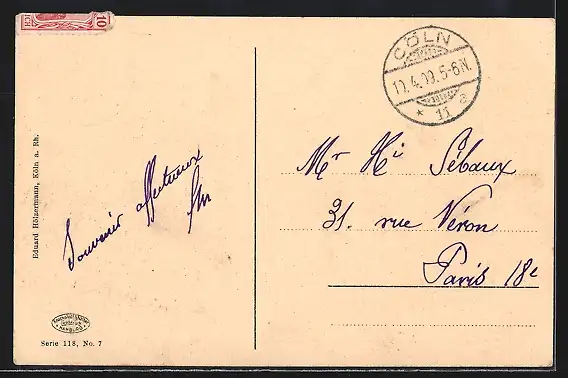 10
CÖLN
10.4.09.5-6N.
* 11 e
Eduard Hölzermann, Köln a. Rh.
Souvenir affectueux
Mr Hi Sébaux
31. rue Véron
Paris 18e
HAMBURG
Serie 118, No. 7